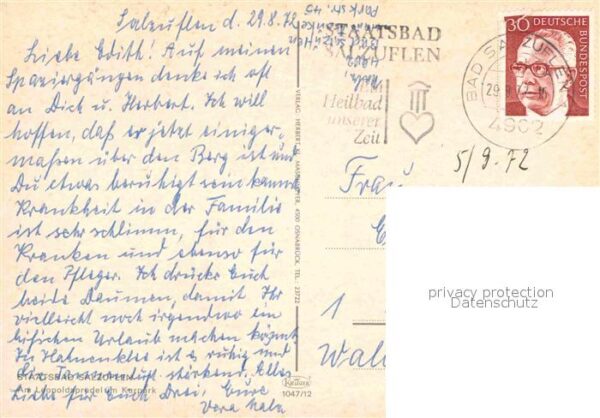 Salzuflen d. 29.8.72
Liebe Edith! Auf meinen
Spaziergängen denke ich oft
an Dich u. Herbert. Ich will
hoffen, daß er jetzt einiger-
maßen über den Berg ist und
Du etwas beruhigt sein kannst
Krankheit in der Familie
ist sehr schlimm, für den
Kranken und ebenso für
den Pfleger. Ich drücke Euch
beide Daumen, damit Ihr
vielleicht noch irgendwo ein
bißchen Urlaub machen könnt
In Hahnenklee ist es ruhig und
die Luft stärkend. Alles
Liebe für Euch Drei, Eure
Vera
STAATSBAD SALZUFLEN
Am Leopoldsprudel im Kurpark
VERLAG: HERBERT 4500 OSNABRÜCK, TEL.: 23722
Krüger
1047/12
Parkstr. 45
STAATSBAD
SALZUFLEN
Ein
Heilbad
unserer
Zeit
BAD SALZUFLEN
4902
30 DEUTSCHE
BUNDESPOST
5/9.72
Frau
1
privacy protection
Datenschutz